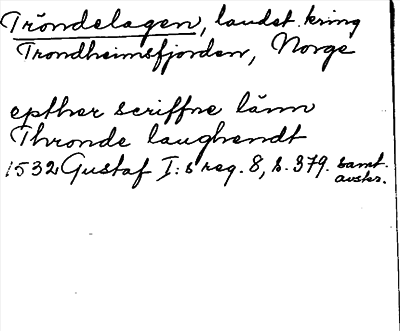 Tröndelagen, landet kring
Trondheimsfjorden, Norge
epther scriffne länn
Thronde laughendt
1532 Gustaf I:s reg. 8, s. 379. samt.
avskr.